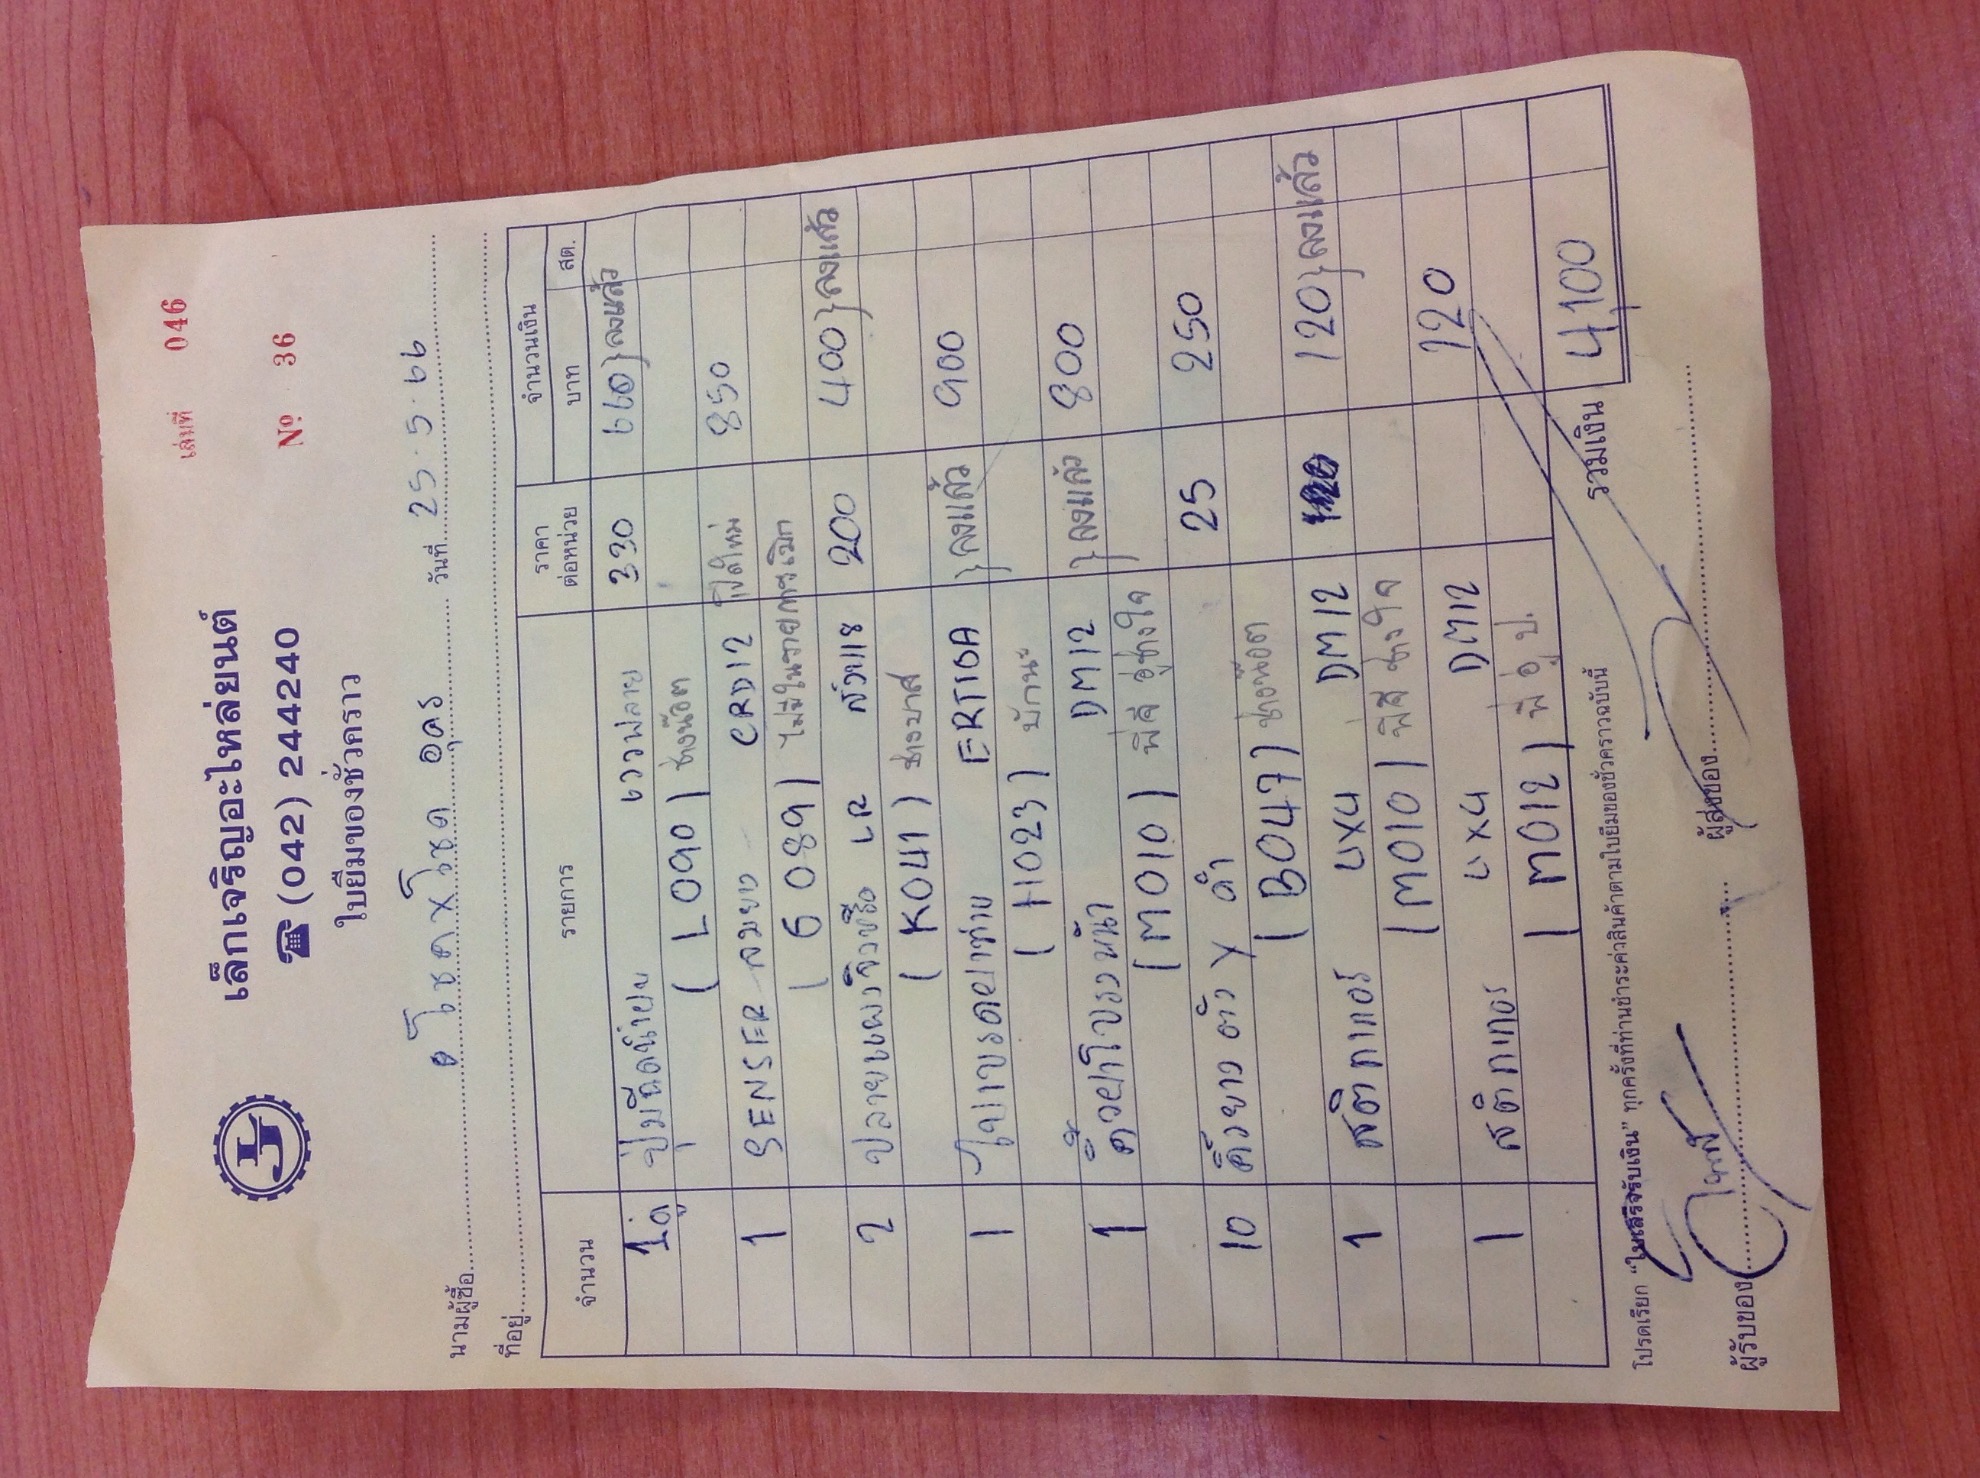 เล่มที่ 046
เล็กเจริญอะไหล่ยนต์
☎ (042) 244240
№ 36
ใบยืมของชั่วคราว
นามผู้ซื้อ โชคxโชค อุดร วันที่ 25.5.66
ที่อยู่
จำนวน รายการ ราคาต่อหน่วย จำนวนเงิน
บาท สต.
1คู่ ปุ่มฉีดน้ำฝน เวฟ 330 660 } ลงแล้ว
( L090 ) ช่างน๊อต
1 SENSER ลมยาง CRD12 850
( 6089 ) ไม่มีในรายการเบิก
2 ปลาย LR 200 400 } ลงแล้ว
( K041 )
1 ใบเบรค ERTIGA } ลงแล้ว 900
( H023 )
1 คิ้วฝาโปรงหน้า DM12 } ลงแล้ว 800
( M010 )
10 ยาว ตัว Y ดำ 25 250
( B047 ) ช่างน๊อต
1 สติกเกอร์ 4x4 DM12 120 } ลงแล้ว
( M010 )
1 สติกเกอร์ 4x4 DM12 120
( M012 )
รวมเงิน 4100
โปรดเรียก “ใบเสร็จรับเงิน” ทุกครั้งที่ท่านชำระค่าสินค้าตามใบยืมของชั่วคราวฉบับนี้
ผู้รับของ ผู้ส่งของ